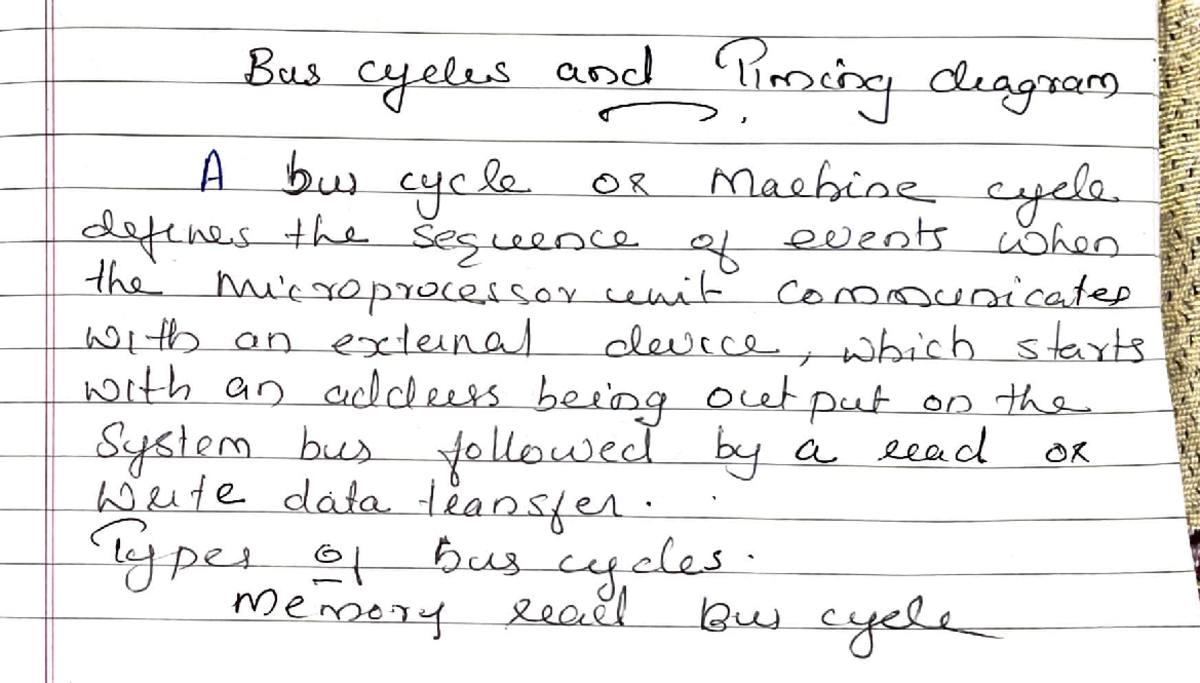 Bus cycles and Timing diagram
A bus cycle or Machine cycle
defines the sequence of events when
the microprocessor unit communicates
with an external device, which starts
with an address being output on the
System bus followed by a read or
write data transfer.
Types of bus cycles.
Memory read Bus cycle